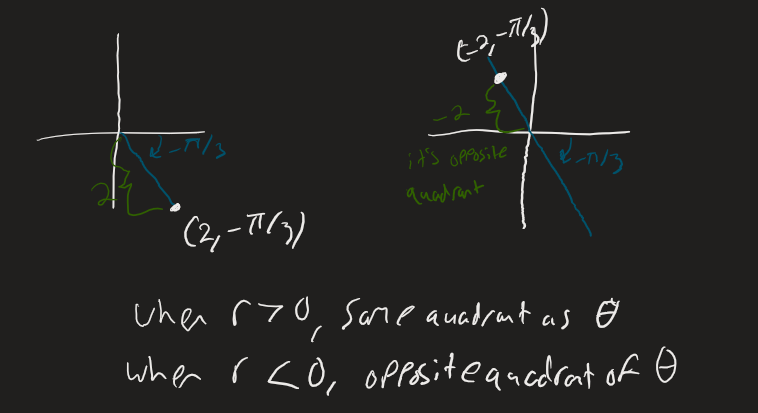 (-2, -π/3)
-2
-π/3
it's opposite
quadrant
-π/3
2
(2, -π/3)
when r > 0, same quadrant as θ
when r < 0, opposite quadrant of θ